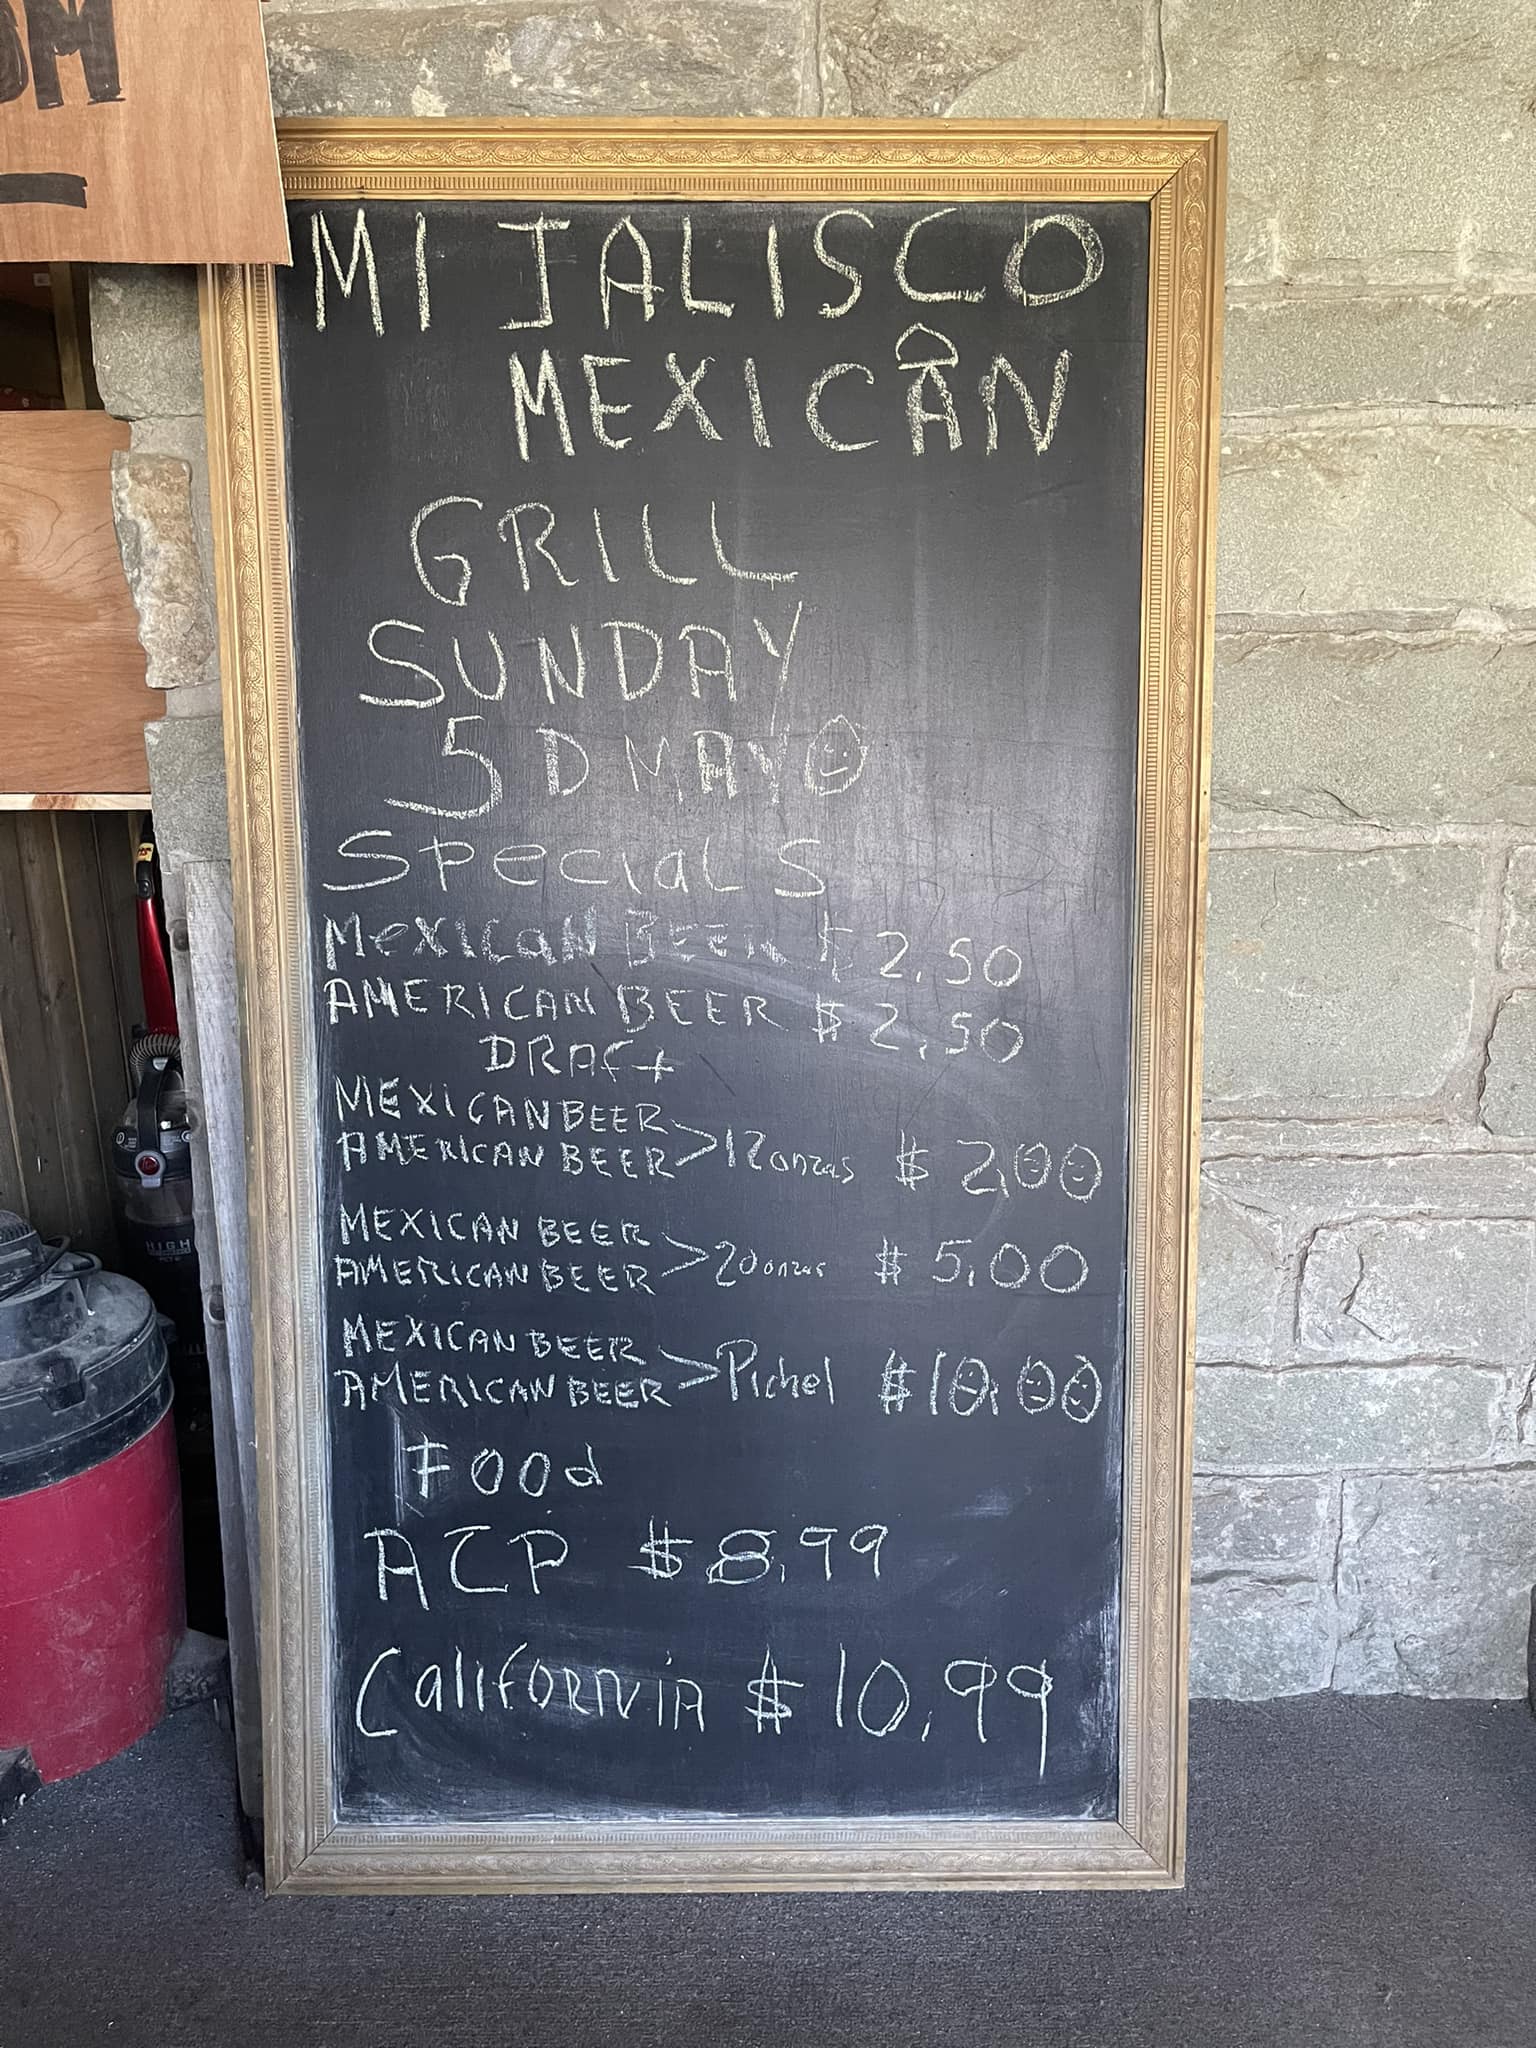 MI JALISCO
MEXICAN
GRILL
SUNDAY
5 D MAYO
SPecial S
MeXICaN BEER $ 2.50
AMERICAN BEER $ 2.50
DRAFt
MEXICAN BEER
AMERICAN BEER >12onzas $ 2.00
MEXICAN BEER
AMERICAN BEER >20onzas $ 5.00
MEXICAN BEER
AMERICAN BEER >Pichel $10.00
FOOd
ACP $8.99
CaliFORNiA $10.99
HIGH